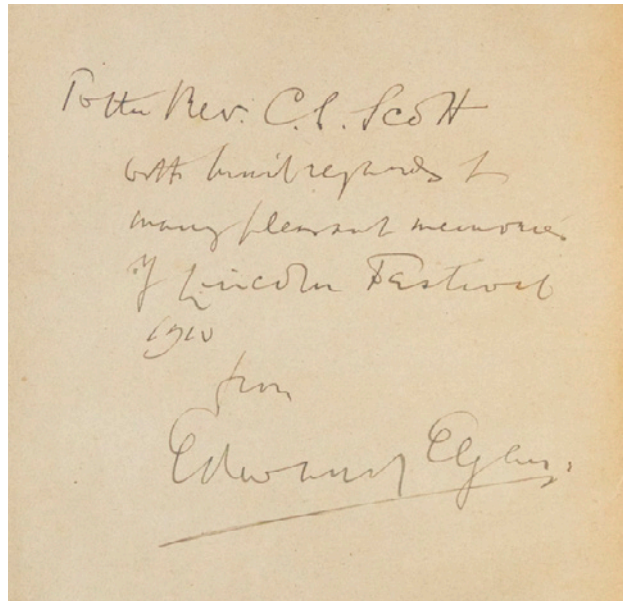 To the Rev. C.E. Scott
with kind regards &
many pleasant memories
of Lincoln Festival
1910
from
Edward Elgar.